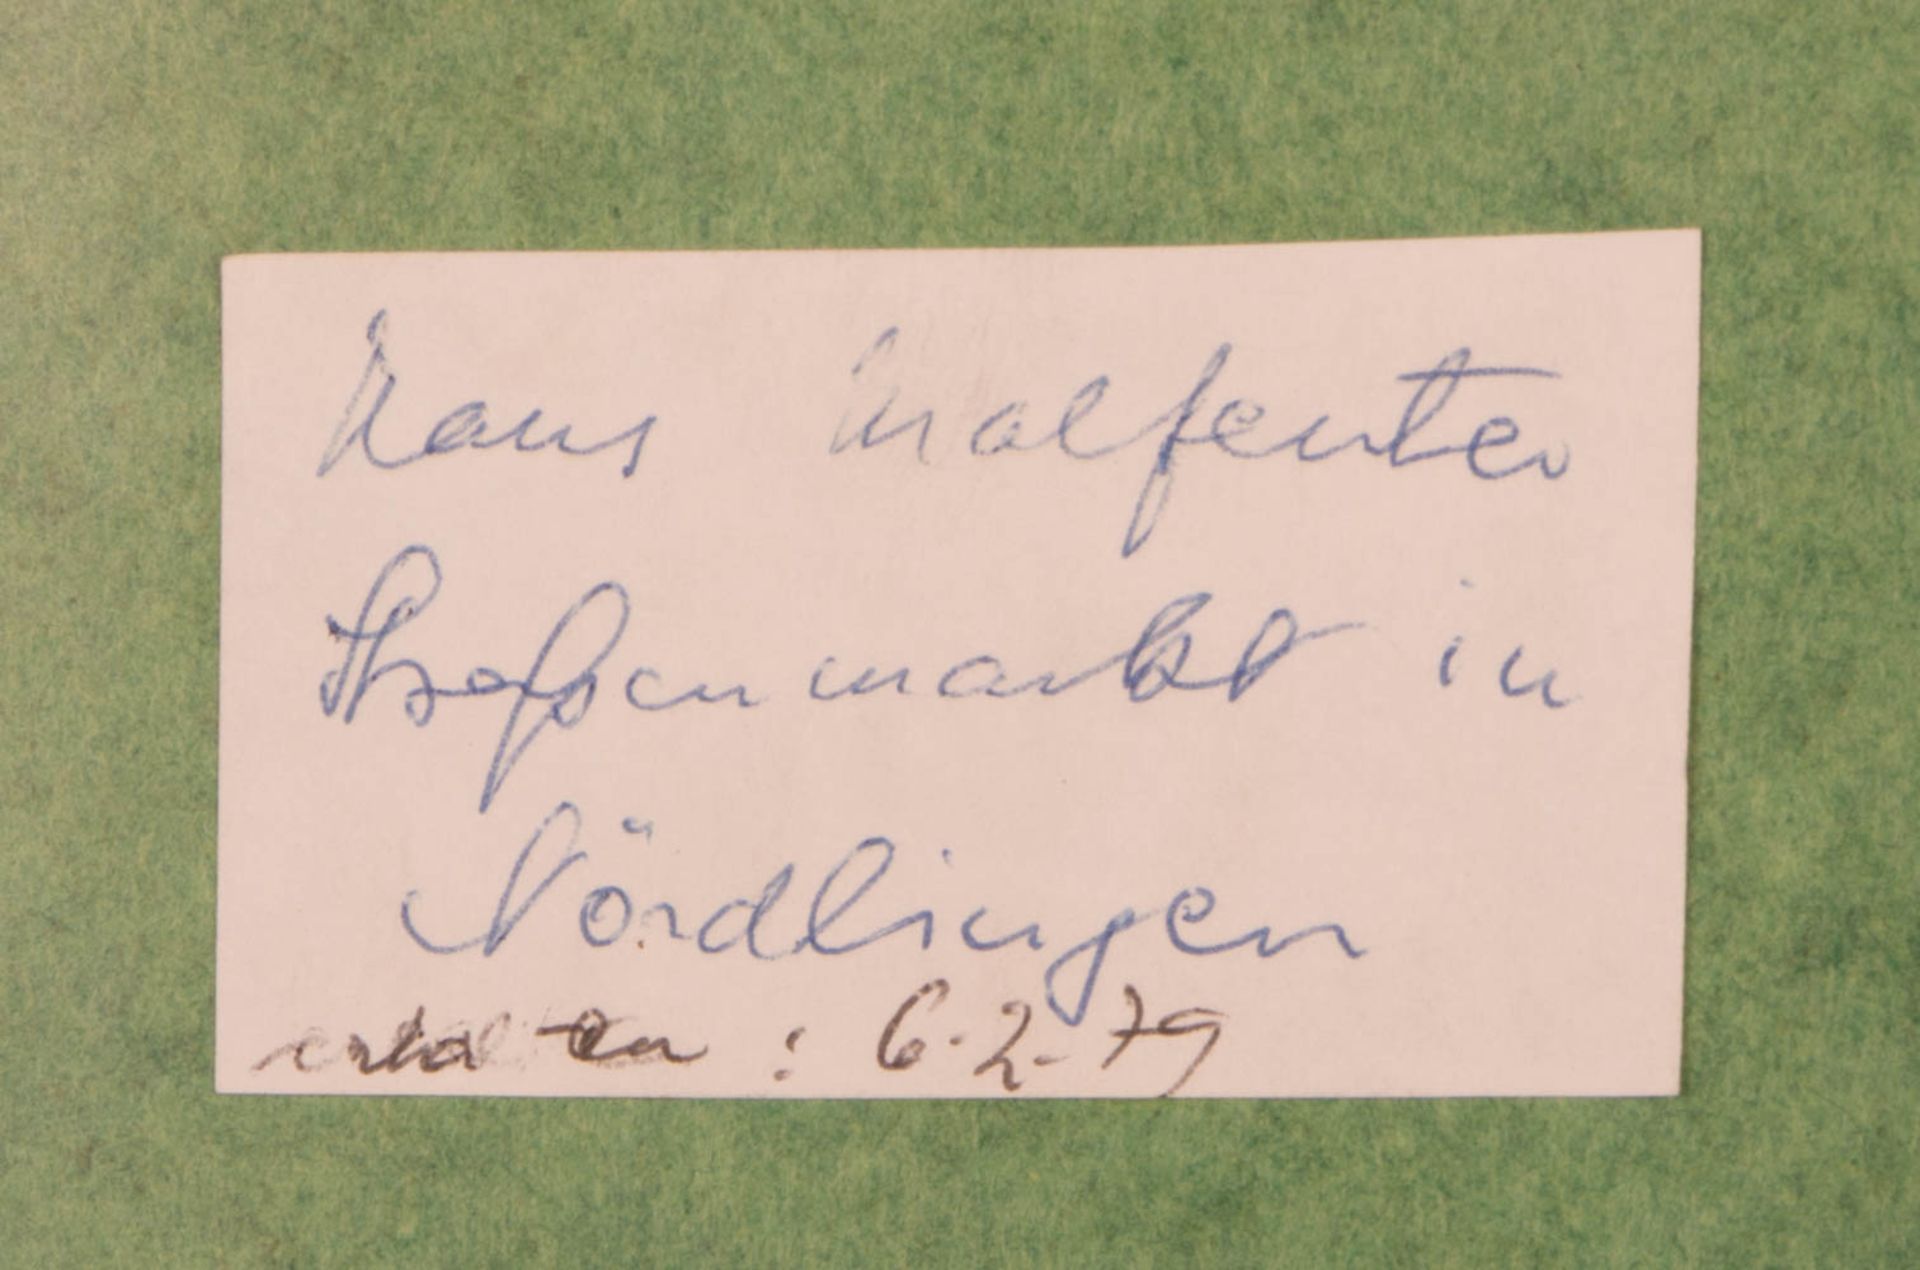 Hans Malfenter
Straßenmarkt in
Nördlingen
erhalten : 6.2.79